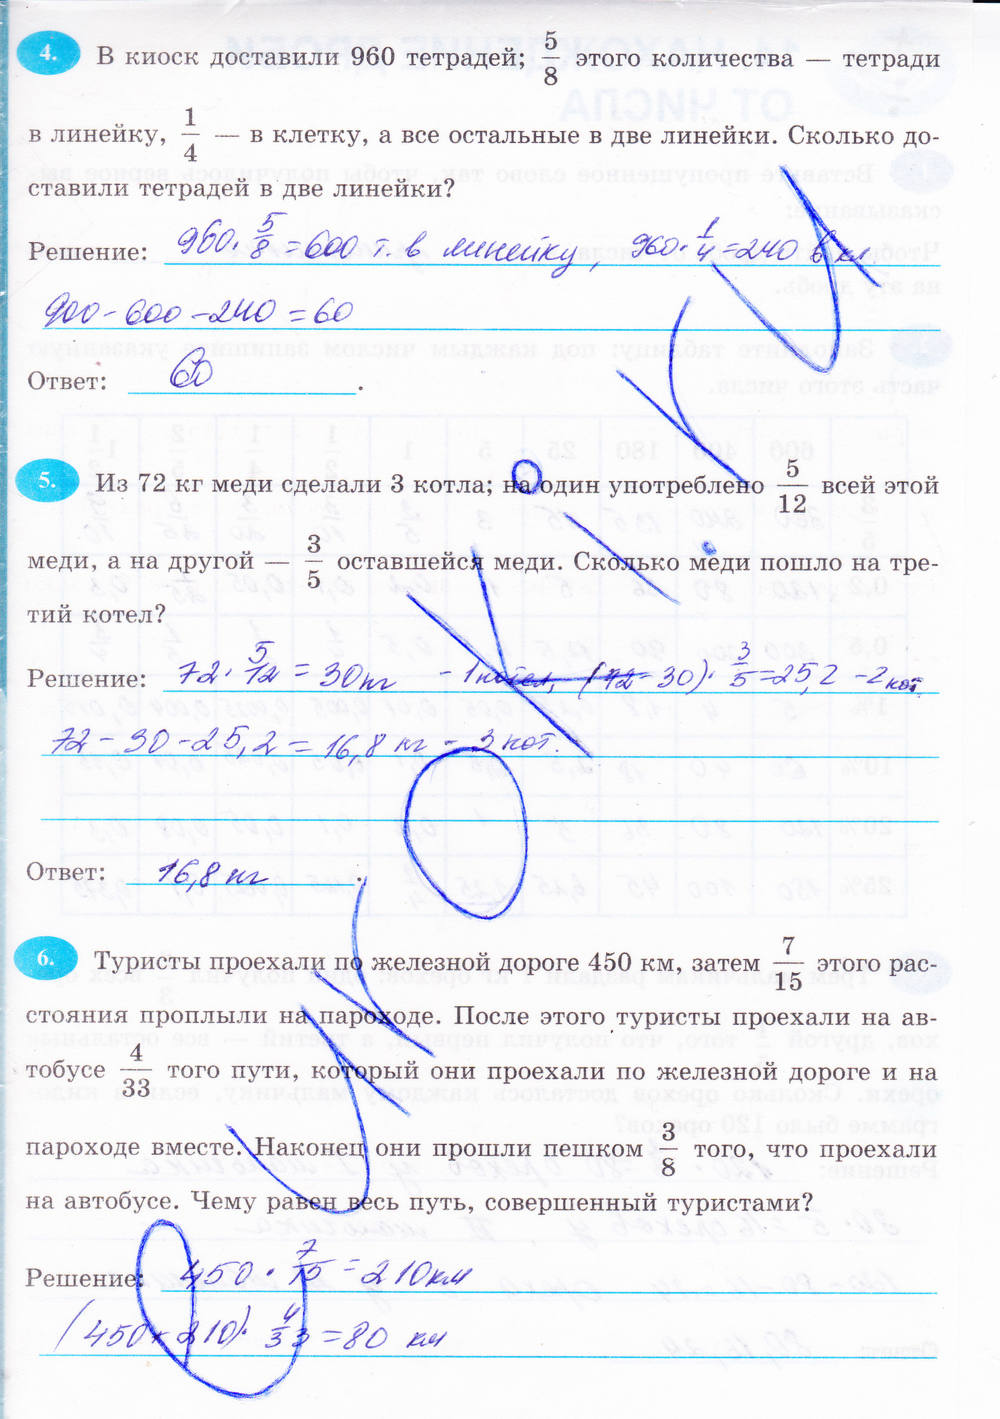 4. В киоск доставили 960 тетрадей; 5/8 этого количества — тетради
в линейку, 1/4 — в клетку, а все остальные в две линейки. Сколько до-
ставили тетрадей в две линейки?
Решение: 960 · 5/8 = 600 т. в линейку, 960 · 1/4 = 240 в кл
900 - 600 - 240 = 60
Ответ: 60.
5. Из 72 кг меди сделали 3 котла; на один употреблено 5/12 всей этой
меди, а на другой — 3/5 оставшейся меди. Сколько меди пошло на тре-
тий котел?
Решение: 72 · 5/12 = 30 кг - 1 котел, (72 - 30) · 3/5 = 25,2 - 2 кот.
72 - 30 - 25,2 = 16,8 кг - 3 кот.
Ответ: 16,8 кг.
6. Туристы проехали по железной дороге 450 км, затем 7/15 этого рас-
стояния проплыли на пароходе. После этого туристы проехали на ав-
тобусе 4/33 того пути, который они проехали по железной дороге и на
пароходе вместе. Наконец они прошли пешком 3/8 того, что проехали
на автобусе. Чему равен весь путь, совершенный туристами?
Решение: 450 · 7/15 = 210 км
(450 + 210) · 4/33 = 80 км